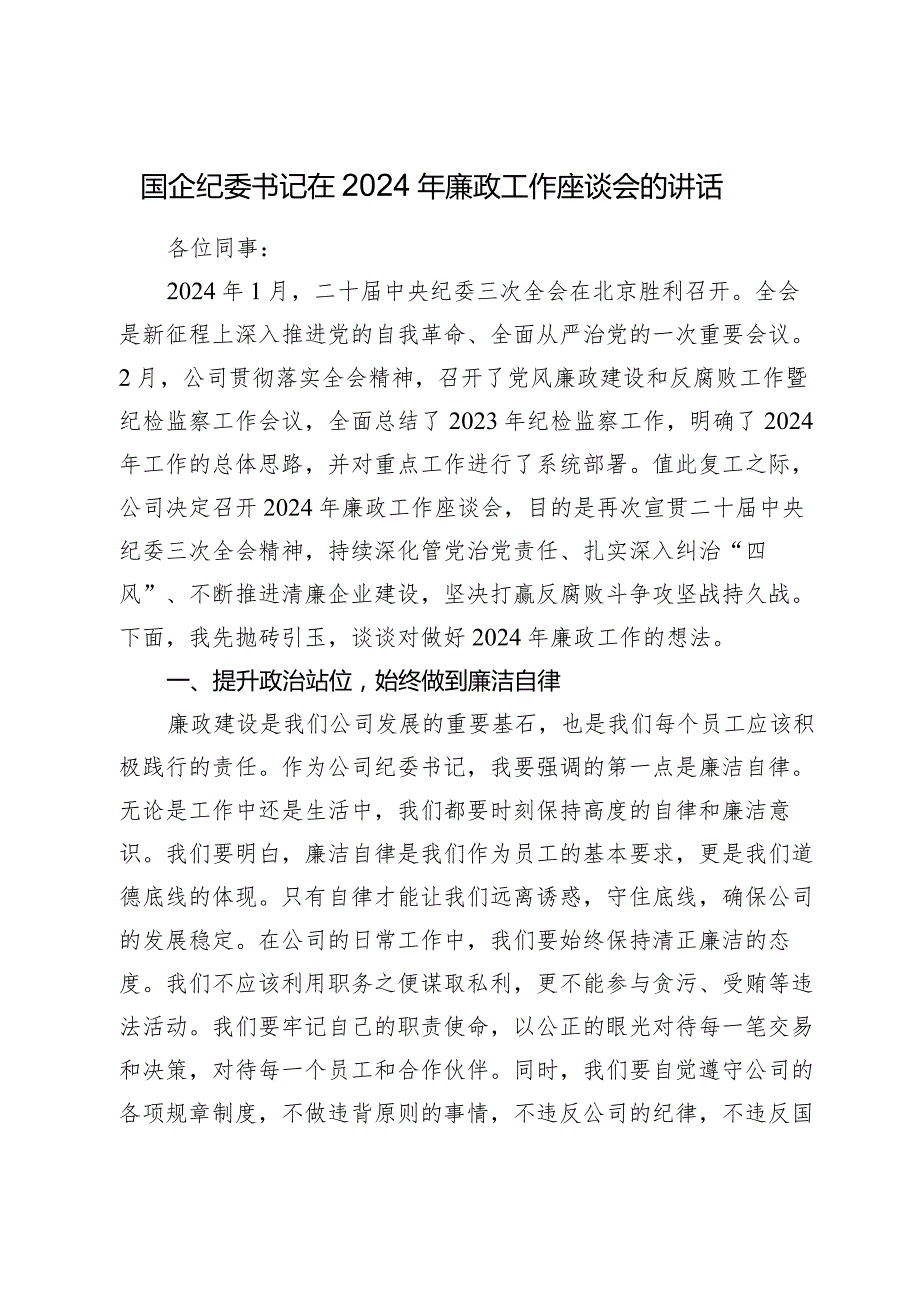 国企纪委书记在 2024 年廉政工作座谈会的讲话
各位同事：
2024 年 1 月，二十届中央纪委三次全会在北京胜利召开。全会
是新征程上深入推进党的自我革命、全面从严治党的一次重要会议。
2 月，公司贯彻落实全会精神，召开了党风廉政建设和反腐败工作暨
纪检监察工作会议，全面总结了 2023 年纪检监察工作，明确了 2024
年工作的总体思路，并对重点工作进行了系统部署。值此复工之际，
公司决定召开 2024 年廉政工作座谈会，目的是再次宣贯二十届中央
纪委三次全会精神，持续深化管党治党责任、扎实深入纠治“四
风”、不断推进清廉企业建设，坚决打赢反腐败斗争攻坚战持久战。
下面，我先抛砖引玉，谈谈对做好 2024 年廉政工作的想法。
一、提升政治站位，始终做到廉洁自律
廉政建设是我们公司发展的重要基石，也是我们每个员工应该积
极践行的责任。作为公司纪委书记，我要强调的第一点是廉洁自律。
无论是工作中还是生活中，我们都要时刻保持高度的自律和廉洁意
识。我们要明白，廉洁自律是我们作为员工的基本要求，更是我们道
德底线的体现。只有自律才能让我们远离诱惑，守住底线，确保公司
的发展稳定。在公司的日常工作中，我们要始终保持清正廉洁的态
度。我们不应该利用职务之便谋取私利，更不能参与贪污、受贿等违
法活动。我们要牢记自己的职责使命，以公正的眼光对待每一笔交易
和决策，对待每一个员工和合作伙伴。同时，我们要自觉遵守公司的
各项规章制度，不做违背原则的事情，不违反公司的纪律，不违反国